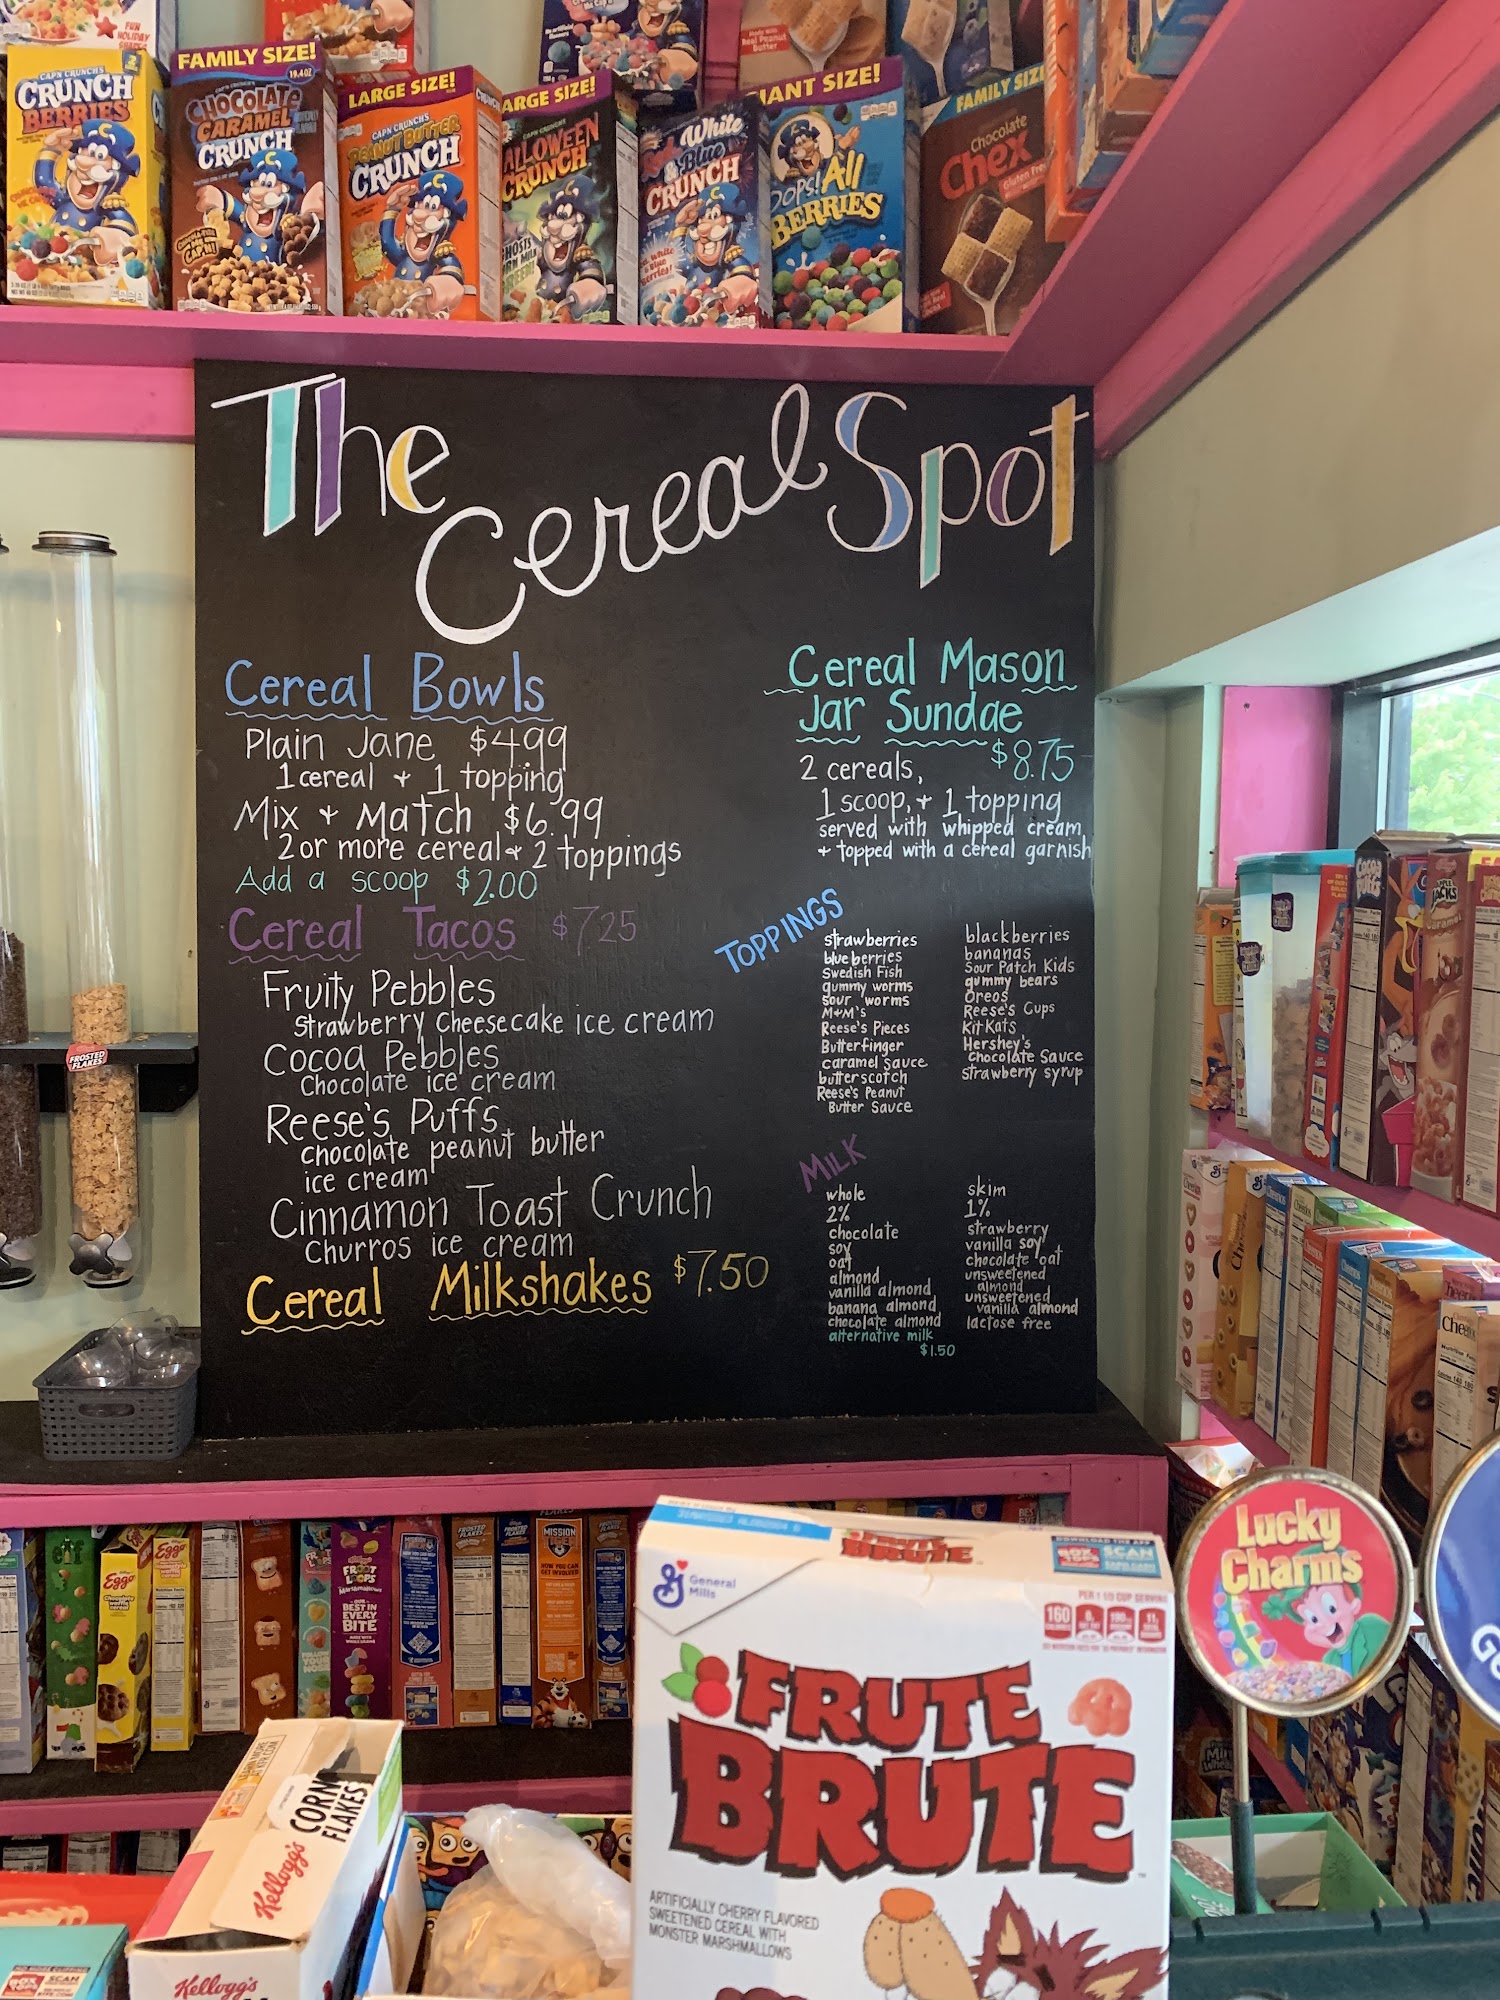 FUN
HOLIDAY
CAP'N CRUNCH'S
CRUNCH
BERRIES
FAMILY SIZE!
19.4 OZ
CHOCOLATE
CARAMEL
CRUNCH
LARGE SIZE!
CAP'N CRUNCH'S
PEANUT BUTTER
CRUNCH
ARGE SIZE!
ALLOWEEN
CRUNCH
Red White
& Blue
CRUNCH
IANT SIZE!
OOPS! All
BERRIES
FAMILY SIZ
Chocolate
Chex
Gluten Free
The Cereal Spot
Cereal Bowls
Plain Jane $4.99
1 cereal + 1 topping
Mix + Match $6.99
2 or more cereal + 2 toppings
Add a scoop $2.00
Cereal Tacos $7.25
Fruity Pebbles
Strawberry Cheesecake ice cream
Cocoa Pebbles
Chocolate ice cream
Reese's Puffs
chocolate peanut butter
ice cream
Cinnamon Toast Crunch
Churros ice cream
Cereal Milkshakes $7.50
Cereal Mason
Jar Sundae
$8.75
2 cereals,
1 scoop, + 1 topping
served with whipped cream
+ topped with a cereal garnish
TOPPINGS
strawberries
blueberries
Swedish Fish
gummy worms
sour worms
M+M's
Reese's Pieces
Butterfinger
caramel sauce
butterscotch
Reese's Peanut
Butter Sauce
blackberries
bananas
Sour Patch Kids
gummy bears
Oreos
Reese's Cups
KitKats
Hershey's
Chocolate Sauce
strawberry syrup
MILK
whole
2%
chocolate
soy
oat
almond
vanilla almond
banana almond
chocolate almond
alternative milk
$1.50
skim
1%
strawberry
vanilla soy
chocolate oat
unsweetened
almond
unsweetened
vanilla almond
lactose free
FROSTED
FLAKES
Eggo
Eggo
FROOT
LOOPS
Marshmallows
BEST IN
EVERY
BITE
FROSTED
FLAKES
MISSION
Kellogg's
CORN
FLAKES
Kellogg's
FRUTE
BRUTE
General
Mills
PER 1 1/3 CUP SERVING
160
FRUTE
BRUTE
ARTIFICIALLY CHERRY FLAVORED
SWEETENED CEREAL WITH
MONSTER MARSHMALLOWS
Lucky
Charms